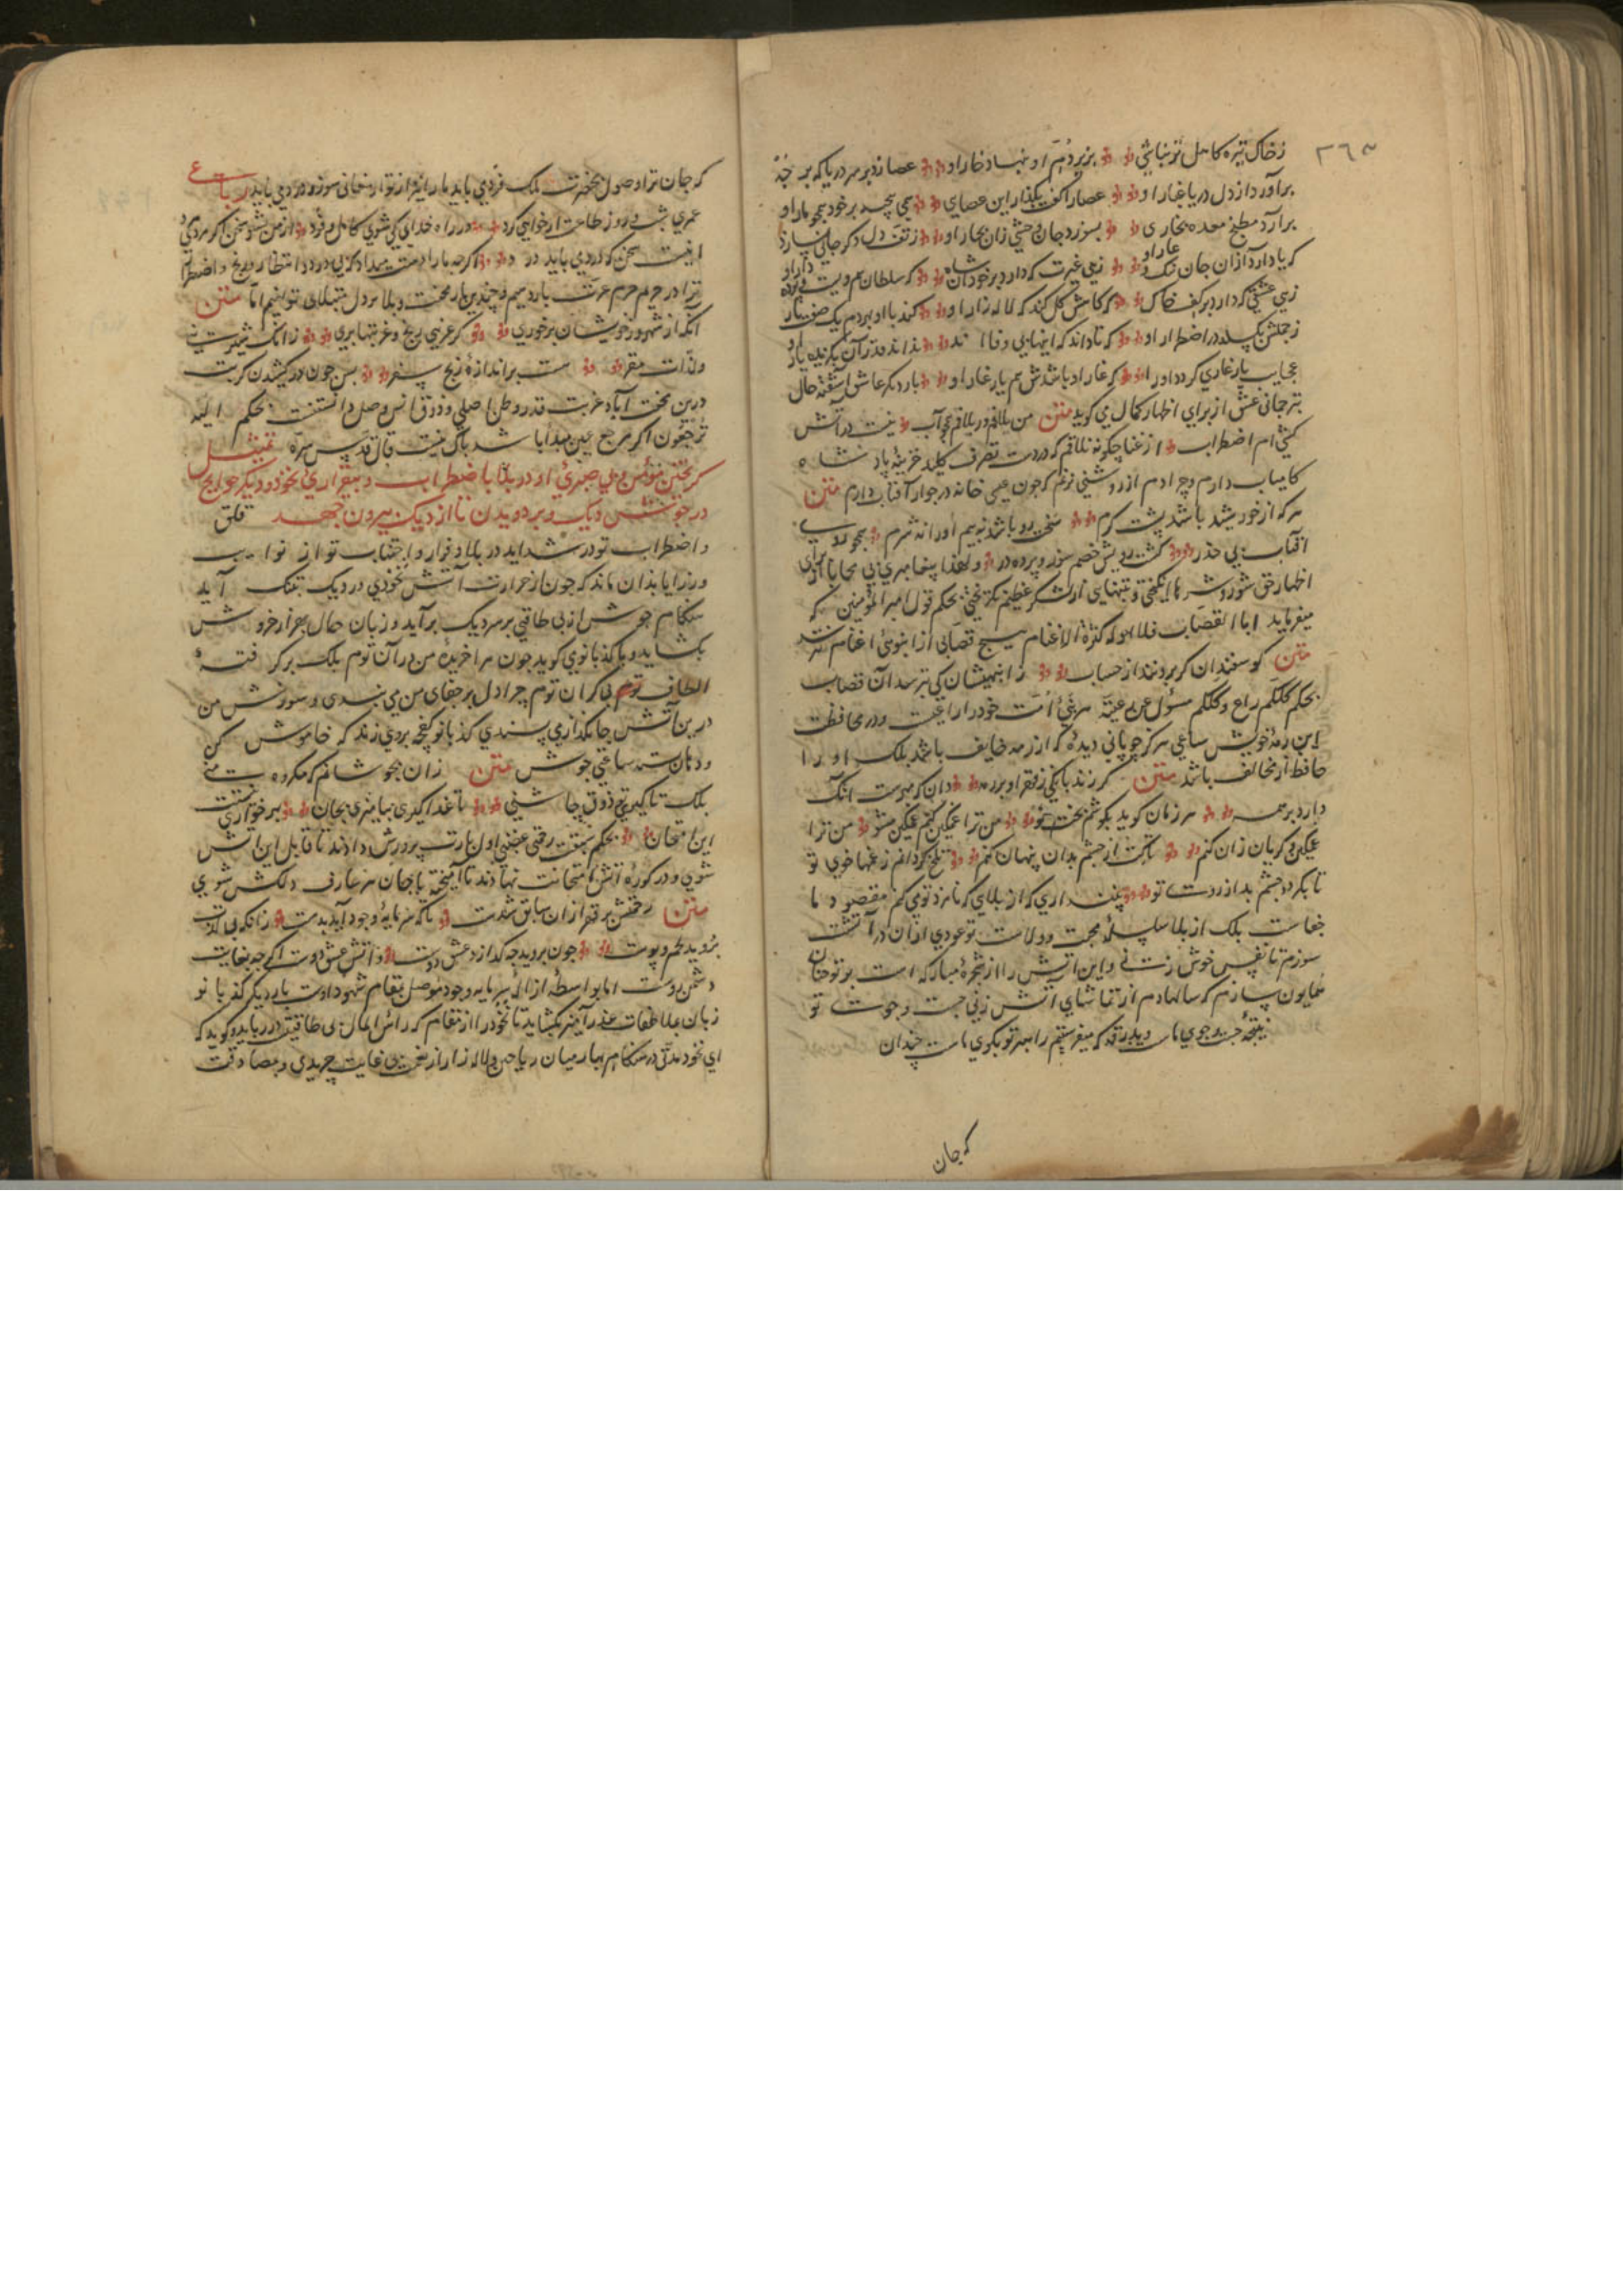 ٣٦٣
ز خاک تیره کامل تر نباشی بزیر دم او نهاد خار او عصا زد بر سر دریا که بر
برآورد از دل دریا غبار او عصا را کف بگذار این عصای همی پیچد بر خود همجو مار او
برآرد مطبخ معده بخاری بسوزد جان زان بخار او ز تف دل دکر جانی
که یاد آرد از آن جان
زهی عشقی که دارد بر کف خاک که کاهش گل کند که لاله زار او کند با او بهر دم یک
ز جمعش یکدم اضطرار او که تا داند که اینها بی وفا اند بداند قدر آن بکزیده یار او
عجایب یار غاری کردد او را که غار او باشدش هم یار غار او بار دیکر عاشق آشفته حال
بترجمانی عشق از برای اظهار کمال می کوید متن من بلاقم در بلاقم همجو آب نیست در آتش
کشی ام اضطراب از غنا چکونه نلاقم که در دست تصرف کلید خزینه پادشاه
کامیاب دارم و چرا دم از روشنی نزنم که جون عیسی خانه در جوار آفتاب دارم متن
هر که از خورشید باشد پشت کرم سخت رو باشد نه بیم او را نه شرم همجو روی
آفتاب بی حذر کشت رویش خصم سوز و پرده در و لهذا پیغامبری بی محابا از برای
اظهار حق شور و شر ها انکیختی و بتنهایی از لشکر عظیم نکریختی بحکم قول امیر المؤمنین که
میفرماید ابا القصاب فلا یهوله کثرة الاغنام هیچ قصابی از انبوهی اغنام نترسد
متن کوسفندان کر بروند از حساب ز انبهیشان کی بترسد آن قصاب
بحکم کلکم راع و کلکم مسئول عن رعیته هر نبی امت خود را راعیست و در محافظت
این رمه خویش ساعی هرکز چوپانی دیده که از رمه خایف باشد بلک او را
حافظ از مخالف باشد متن کر زند بانکی ز قهر او بر رمه دان که مهرست آنک
دارد بر همه هر زمان کوید بکوشم بخت نو من ترا غمکین کنم غمکین مشو من ترا
غمکین و کریان زان کنم تا کت از چشم بدان پنهان کنم تلخ کردانم ز غمها خوی تو
تا بکردد چشم بد از روت تو پنداری که از بلایی که نامزد تو می کنم مقصود ما
جفاست بلک از بلا سلسله محبت و ولاست تو عودی از آن در آتشت
سوزم تا نفس خوش زنی و این آتش را از شجره مبارکه است بر تو چنان
همایون سازم که سالها دم از تماشای آتش زنی جست و جوی تو
نتیجه جست و جوی ماست و بدرقه که میفرستیم راهبر تو بکوی ماست چندان
که جان
که جان ترا وصول بحضرت بلک فردی باید یا را نیز از تو ارمغانی سوز و دردی باید رباعی
عمری شب و روز طاعت ار خواهی کرد در راه خدای کی شوی کامل و فرد از من بشنو سخن اکر مردی
اینست سخن که دردی باید درد اکرچه یارا دست میداد که بی درد انتظار و رنج و اضطرار
ترا در حریم حرم عزت بار دهیم و چندین بار محنت و بلا بر دل مبتلای تو ننهیم اما متن
آنکه از شهر و ز خویشان بر خوری کز غریبی رنج و محنتها بری زانک شیرینی
و لذات مقر هست بر اندازه رنج سفر پس جون در کشیدن کربت
درین محنت آباد غربت قدر وطن اصلی و ذوق انس وصل دانستنست بحکم الیه
ترجعون اکر مرجع عین مبدا باشد باک نیست قال قدس سره تمثیل
کریختن مؤمن و بی صبری او در بلا باضطراب و بیقراری نخود و دیکر حوایج
در جوشش دیک و بر دویدن تا از دیک بیرون جهد قلق
و اضطراب تو در شداید در بلا و فرار و اجتناب تو از نوایب
و رزایا بدان ماند که جون از حرارت آتش نخودی در دیک تنک آید
هنکام جوشش از بی طاقتی بر سر دیک برآید و زبان حال بهزار خروش
بکشاید و با کدبانوی کوید جون مرا خریده من در آن توم بلک برکرفته
الطاف بی کران توم چرا دل بر جفای من می بندی و سوزش من
درین آتش جانکدازی پسندی کدبانو کفچه بر وی زند که خاموش کن
و دهان بسته ساعتی جوش متن زان نجوشانم که مکروه منی
بلک تا کیری تو ذوق چاشنی تا غذا کیری بیامیزی بجان بهر خواری نیستت
این امتحان بحکم سبقت رحمتی غضبی اول بارت پرورش دادند تا قابل این آتش
شوی و در کوره آتش امتحانت نهادند تا آمیخته با جان هر عارف دلکش شوی
متن رحمتش بر قهر از آن سابق شدست تا که سرمایه وجود آید بدست زانکه بی لذت
نروید لحم و پوست چون نروید چه کدازد عشق دوست و آتش عشق دوست اکرچه بغایت
دشمن روست اما بواسطه ازاله سرمایه وجود موصل بمقام شهود اوست بار دیکر کدبانو
زبان ملاطفات عذرآمیز بکشاید تا نخود را از مقام که رأس المال بی طاقتی در رباید و کوید که
ای نخود مدتی در هنکام بهار میان ریاحین و لاله زار از نعمت بی غایت چریدی و بمصادقت